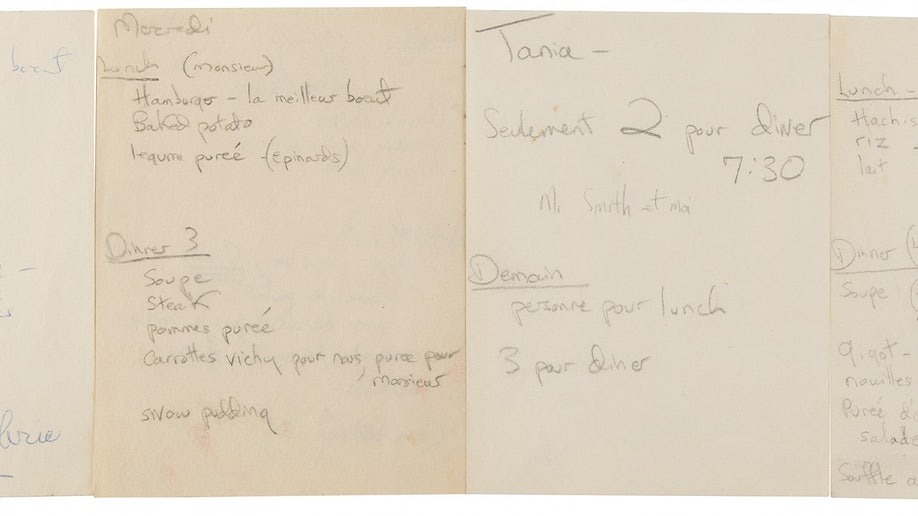 boeuf
Mercredi
Lunch (monsieur)
Hamburger - la meilleur boeuf
Baked potato
legume pureé - (epinards)
Dinner 3
Soupe
Steak
pommes pureé
Carrottes vichy pour nous, puree pour
monsieur
snow pudding
Tania -
Seulement 2 pour diner
7:30
Mr Smith et moi
Demain
personne pour lunch
3 pour diner
Lunch -
Hachis
riz -
lait
Dinner (
Soupe (
gigot -
nouilles
Purée d
salade
Souffle a